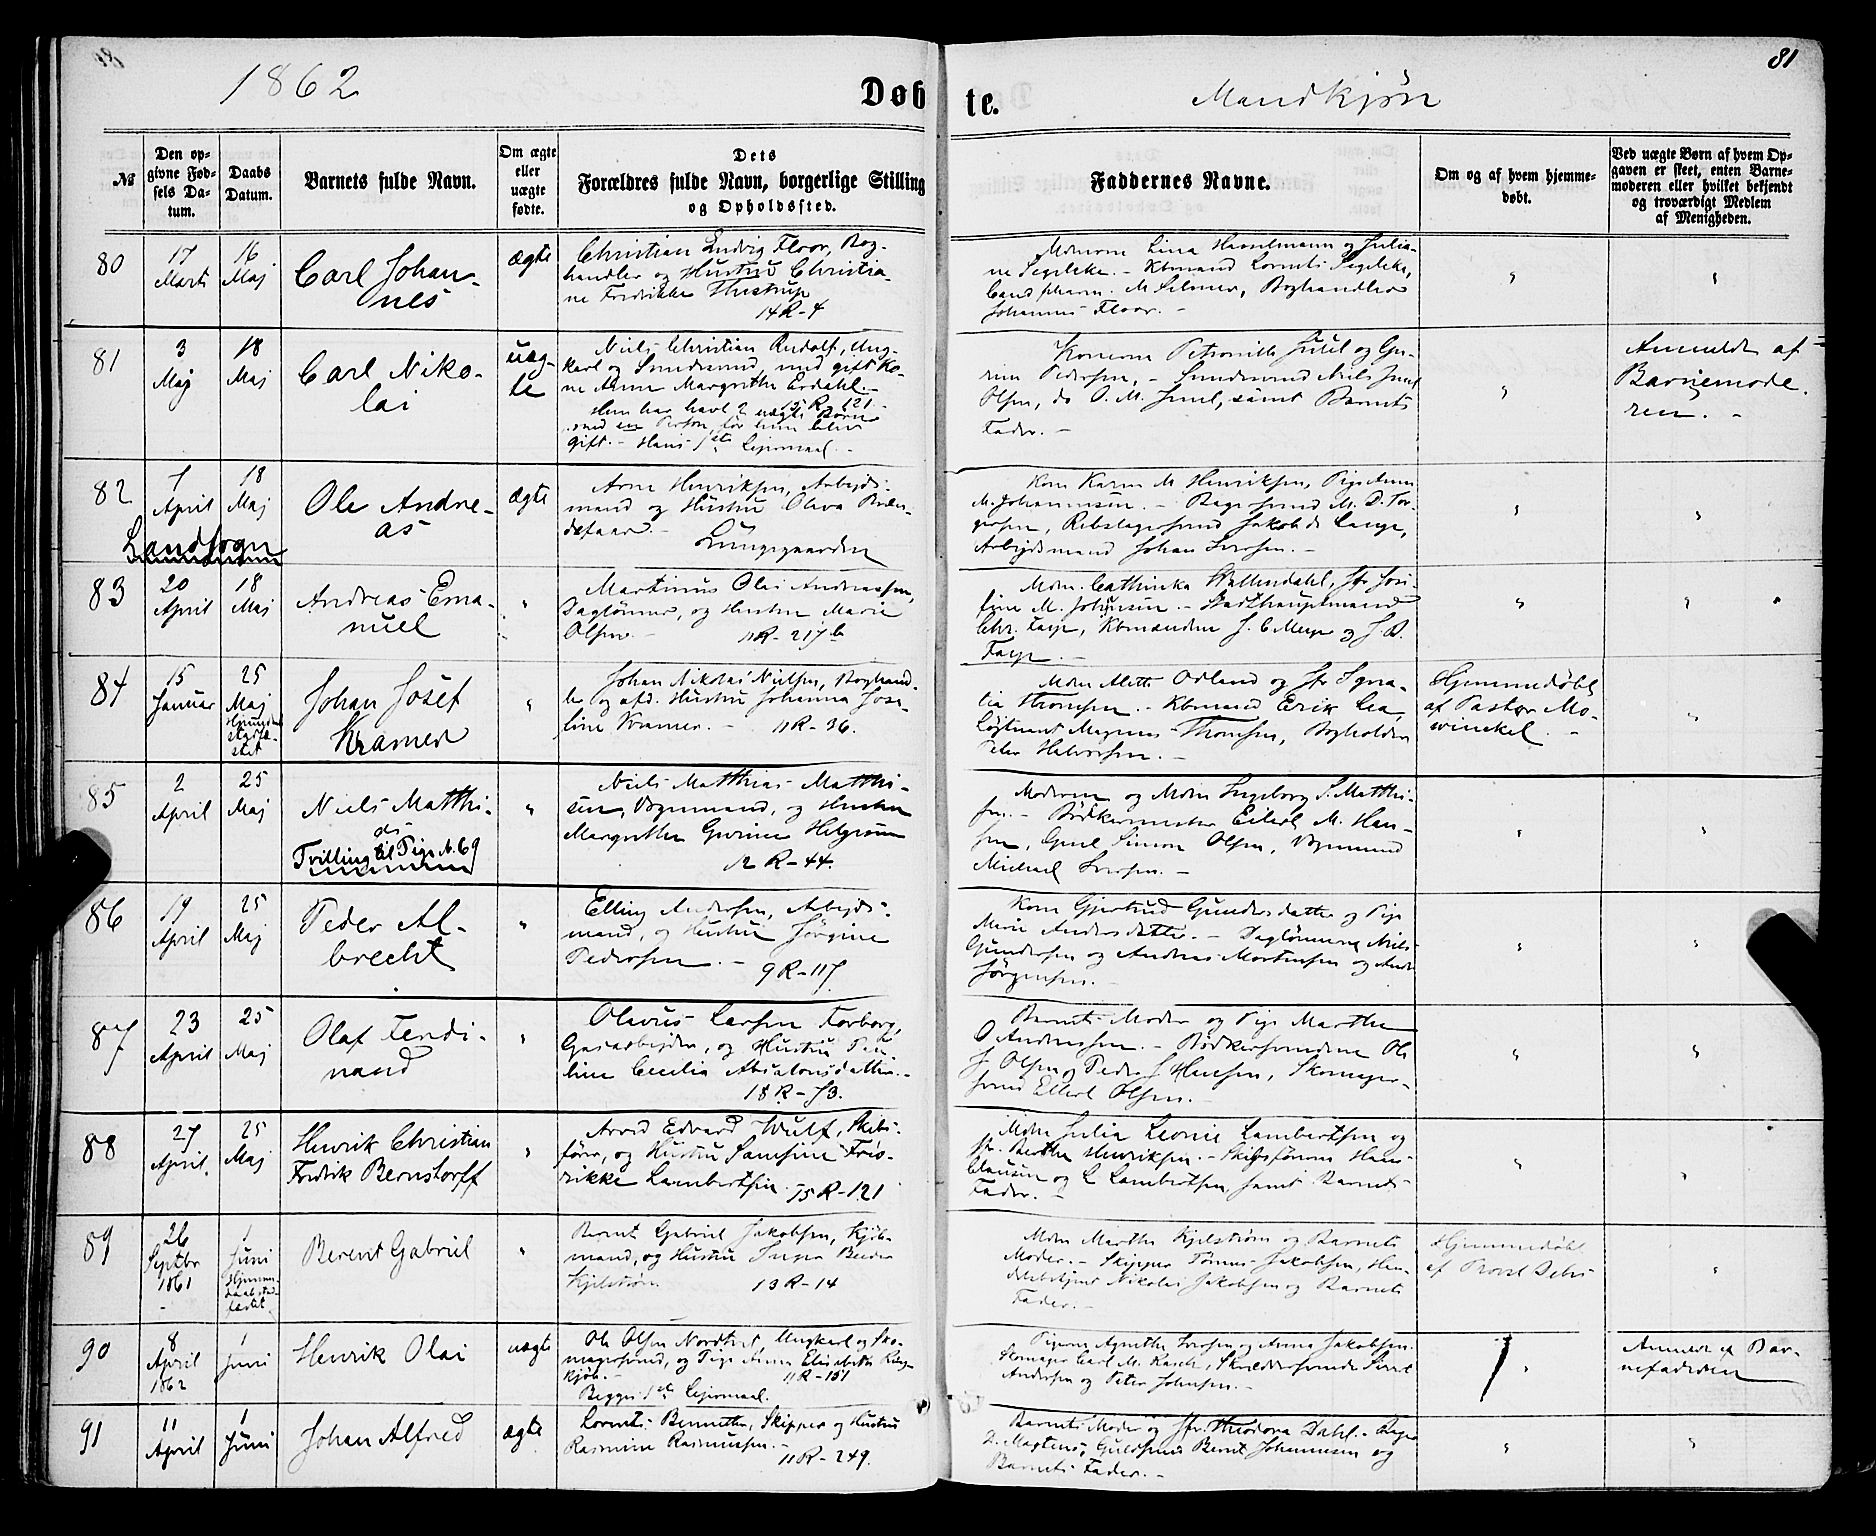 1862
Døbte.
Mandkjøn
81
№
Den opgivne Fødsels Datum.
Daabs Datum.
Barnets fulde Navn.
Om ægte eller uægte fødte.
Dets
Forældres fulde Navn, borgerlige Stilling
og Opholdssted.
Faddernes Navne.
Om og af hvem hjemmedøbt.
Ved uægte Børn af hvem Opgaven er skeet, enten Barnemoderen eller hvilket bekjendt og troværdigt Medlem af Menigheden.
80
17 Marts
16 Maj
Carl Johan-
nes
ægte
Christian Ludvig Floor, Bog-
handler og Hustru Christia-
ne Fredrikke Thustrup
14 R - 4
Madmrne Lina Hasselmann og Julia-
ne Segelcke. - Kbmand Lorentz Segelcke,
Cand pharm. M Selmer, Boghandler
Johannes Floor. -
81
3 Maj
18 Maj
Carl Niko-
lai
uæg-
te
Niels Christian Rudolf, Ung-
karl og Svendsvend, med gift Ko-
ne Anne Margrethe Erdahl. -
15 R - 121 -
Hun har havt 2 uægte Børn
med en Person, før hun blev
gift. - Hans 1ste Lejermaal. -
Konerne Petronille Juul og Gu-
rine Pedersen, - Svendsvend Niels Juul
Olsen, do O. M. Juul, samt Barnets
Fader. -
Anmeldt af
Barnemode-
ren. -
82
1 April
18 Maj
Landsogn
Ole Andre-
as
ægte
Arne Henriksen, Arbejds-
mand og Hustru Oliva Peder-
defaar. -
Lungegaarden
Kone Karen M Henriksen, Pige Anne
M. Johannesen. - Bagersvend M. D. Tor-
gersen, Rebslagersvend Jakob d. Lange,
Arbejdsmand Johan Iversen. -
83
20 April
18 Maj
Andreas Ema-
nuel
Martinus Olai Andreassen,
Daglønner, og Hustru Marie
Olsen. -
11 R - 217 b
Mdm. Cathinka Stallendahl, Jfr Jose-
fine M. Johnsen. - Stadthauptmand
Chr. Fasje, Kbmændene J. C Meyer og J. D.
Fasje. -
84
15 Januar
25 Maj
Hjemmedaab stadfæstet
Johan Josef
Kramer
Johan Nikolai Nielsen, Boghand-
ler og afd. Hustru Johanna Jose-
fine Kramer. -
11 R - 36.
Mdm Alette Odland og Jfr Igna-
tia Thomsen. - Kbmand Erik Lea,
Løjtnant Magnus Thomsen, Bogholder
Peter Halvorsen. -
Hjemmedøbt
af Pastor Mo-
winckel. -
85
2 April
25 Maj
Niels Matthi-
as
Tvilling til Pige N. 69
Niels Matthias Matthi-
sen, Vognmand, og Hustru
Margrethe Gurine Helgesen
12 R - 44.
Moderen og Mdm Ingeborg S. Matthi-
sen. - Bødkermester Eilert M. Han-
sen, Gsel Simon Olsen, Vognmand
Michael Iversen. -
86
19 April
25 Maj
Peder Al-
brecht
Elling Andersen, Arbejds-
mand, og Hustru Jørgine
Pedersen. -
9 R - 117
Kone Gjertrud Gundersdatter og Pige
Marie Andersdatter. - Daglønnerne Niels
Gundersen og Andreas Mortensen og Anders
Jørgensen. -
87
23 April
25 Maj
Olaf Ferdi-
nand
Olavus Larsen Forborg,
Gasarbejder, og Hustru Pau-
line Cecilia Absalonsdatter. -
18 R - 73.
Barnets Moder og Pige Marthe
O Andreassen. - Bødkersvendene Ole
J Olsen og Peder J Hansen, Skomager-
svend Ellert Olsen. -
88
27 April.
25 Maj
Henrik Christian
Fredrik Bernstorff
Arved Edvard Wulf, Skibs-
fører, og Hustru Samsine Fred-
rikke Lambertsen
15 R - 121
Mdm Julia Leonie Lambertsen og
Jfr. Berthe Henriksen. - Skibsførerne Hans
Clausen og L Lambertsen, samt Barnets
Fader. -
89
26 Septbr 1861
1 Juni
Hjemmedaab stadfæstet
Berent Gabriel
Bernt Gabriel Jakobsen, Kjøb-
mand, og Hustru Inger Berder
Kjelstrøm
13 R - 14
Mdm Marthe Kjelstrøm og Barnets
Moder. - Skipper Tønnes Jakobsen, Han-
delsbetjent Nikolai Jakobsen og Barnets
Fader. -
Hjemmedøbt
af Provst Debes
90
8 April 1862
1 Juni
Henrik Olai
uægte
Ole Olsen Nordtvet, Ungkarl og Sko-
magersvend, og Pige Anna Elisabeth Ring-
kjøb. -
11 R - 151
Begges 1ste Lejermaal.
Pigerne Agnethe Iversen og Anna Jakobsen.
Skomager Carl M. Rasch, Skræddersvende Sivert
Andersen og Peter Johnsen. -
Anmeldt af Bar-
nefaderen
91
11 April
1 Juni
Johan Alfred
ægte
Lorents Bennetter, Skipper og Hustru
Rasmine Rasmussen. -
11 R - 249.
Barnets Moder og Jfr. Theodora Dahl. - Bager
D. Martens, Guldsmed Bernt Johannesen og
Barnets Fader. -